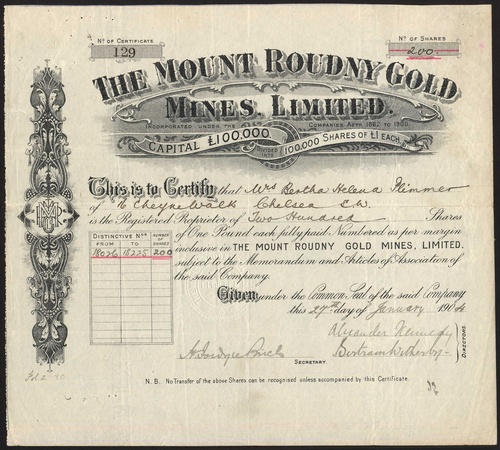 No OF CERTIFICATE
129
No OF SHARES
200
THE MOUNT ROUDNY GOLD
MINES, LIMITED.
INCORPORATED UNDER THE COMPANIES ACTS, 1862 TO 1900
CAPITAL £100,000 DIVIDED INTO 100,000 SHARES OF £1 EACH.
This is to Certify that Mrs Bertha Helena
of Cheyne Walk Chelsea S.W.
is the Registered Proprietor of Two Hundred Shares
of One Pound each fully paid Numbered as per margin
inclusive in THE MOUNT ROUDNY GOLD MINES, LIMITED.
subject to the Memorandum and Articles of Association of
the said Company.
DISTINCTIVE Nos
FROM TO
NUMBER OF SHARES
18026 18225 200
Given under the Common Seal of the said Company
this 27th day of January 1904
Alexander
Bertram
DIRECTORS.
SECRETARY.
N.B. No Transfer of the above Shares can be recognised unless accompanied by this Certificate.